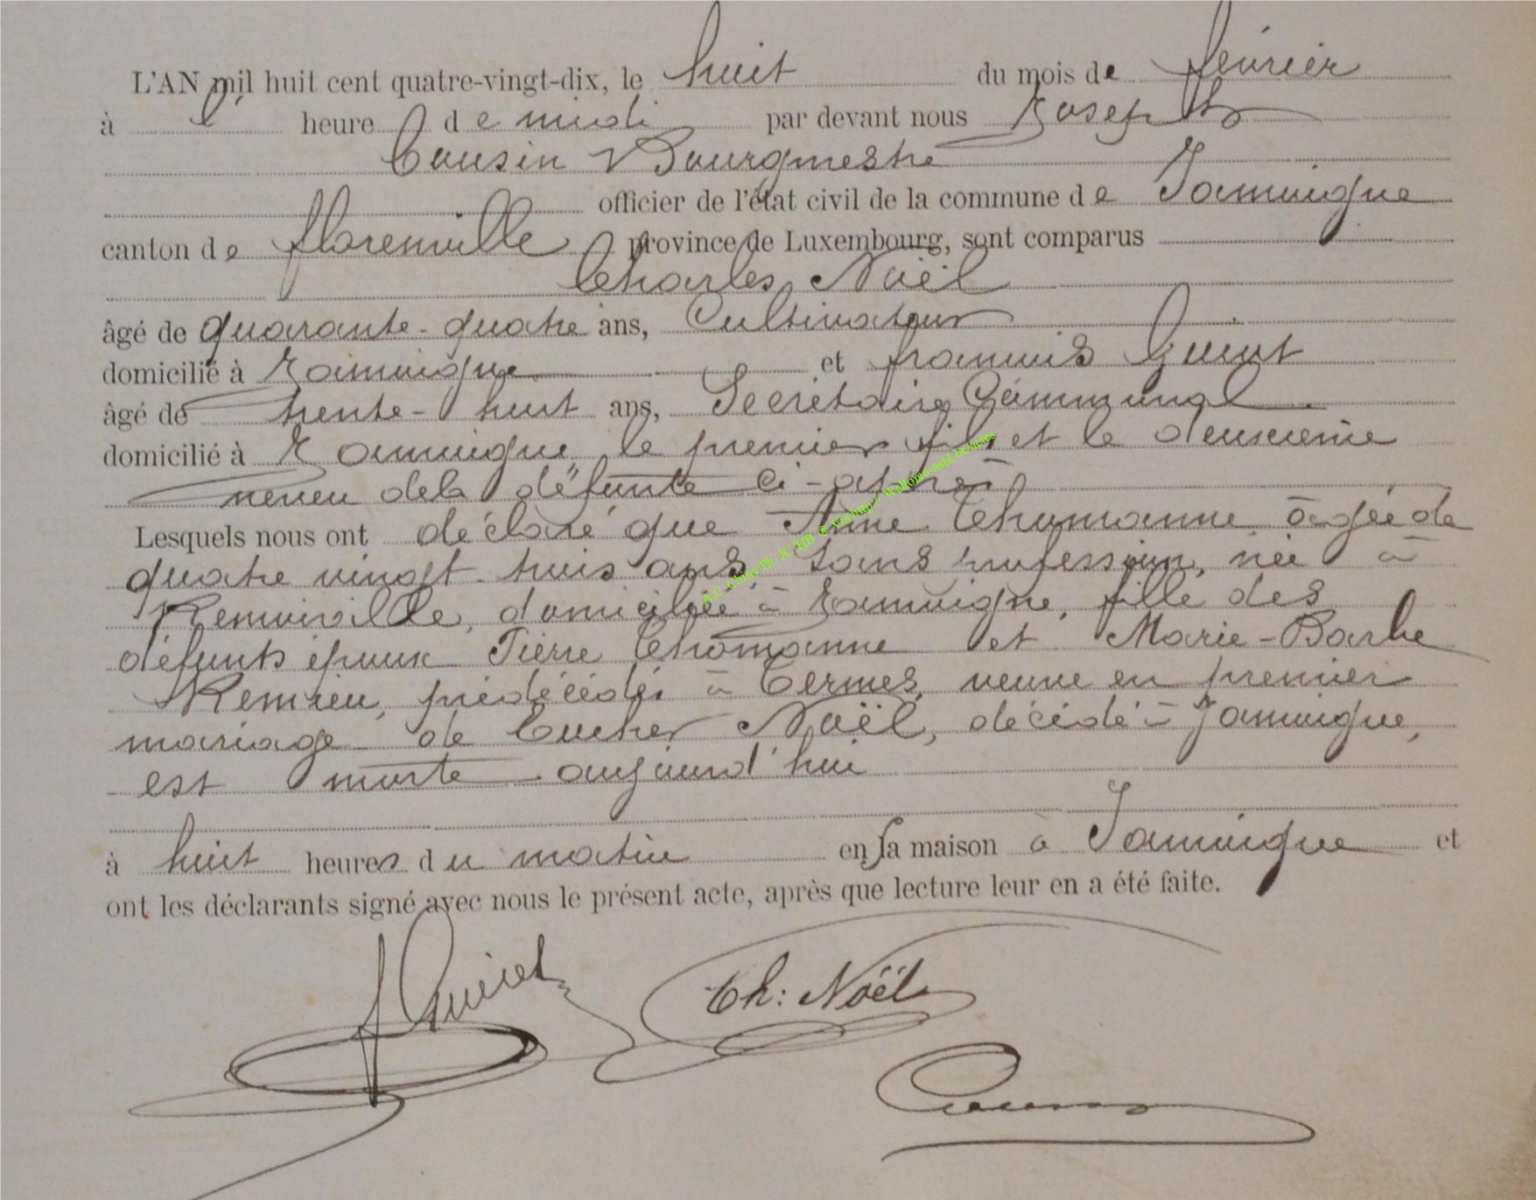 L'AN mil huit cent quatre-vingt-dix, le huit du mois de février
à heure de midi par devant nous Joseph
Cousin Bourgmestre
officier de l'état civil de la commune de Jamoigne
canton de florenville province de Luxembourg, sont comparus
Charles Noël
âgé de quarante-quatre ans, Cultivateur
domicilié à Jamoigne et françois
âgé de trente-huit ans, Secrétaire Communal
domicilié à Jamoigne le premier fils et le deuxième
neveu de la défunte ci-après
Lesquels nous ont déclaré que Anne Thomanne âgée de
quatre vingt trois ans sans profession, née à
domiciliée à Jamoigne, fille des
défunts époux Pierre Thomanne et Marie-Barbe
prédécédés à Termes, veuve en premier
mariage de Noël, décédé à Jamoigne,
est morte aujourd'hui
à huit heures du matin en sa maison à Jamoigne et
ont les déclarants signé avec nous le présent acte, après que lecture leur en a été faite.
Ch: Noël
Cousin